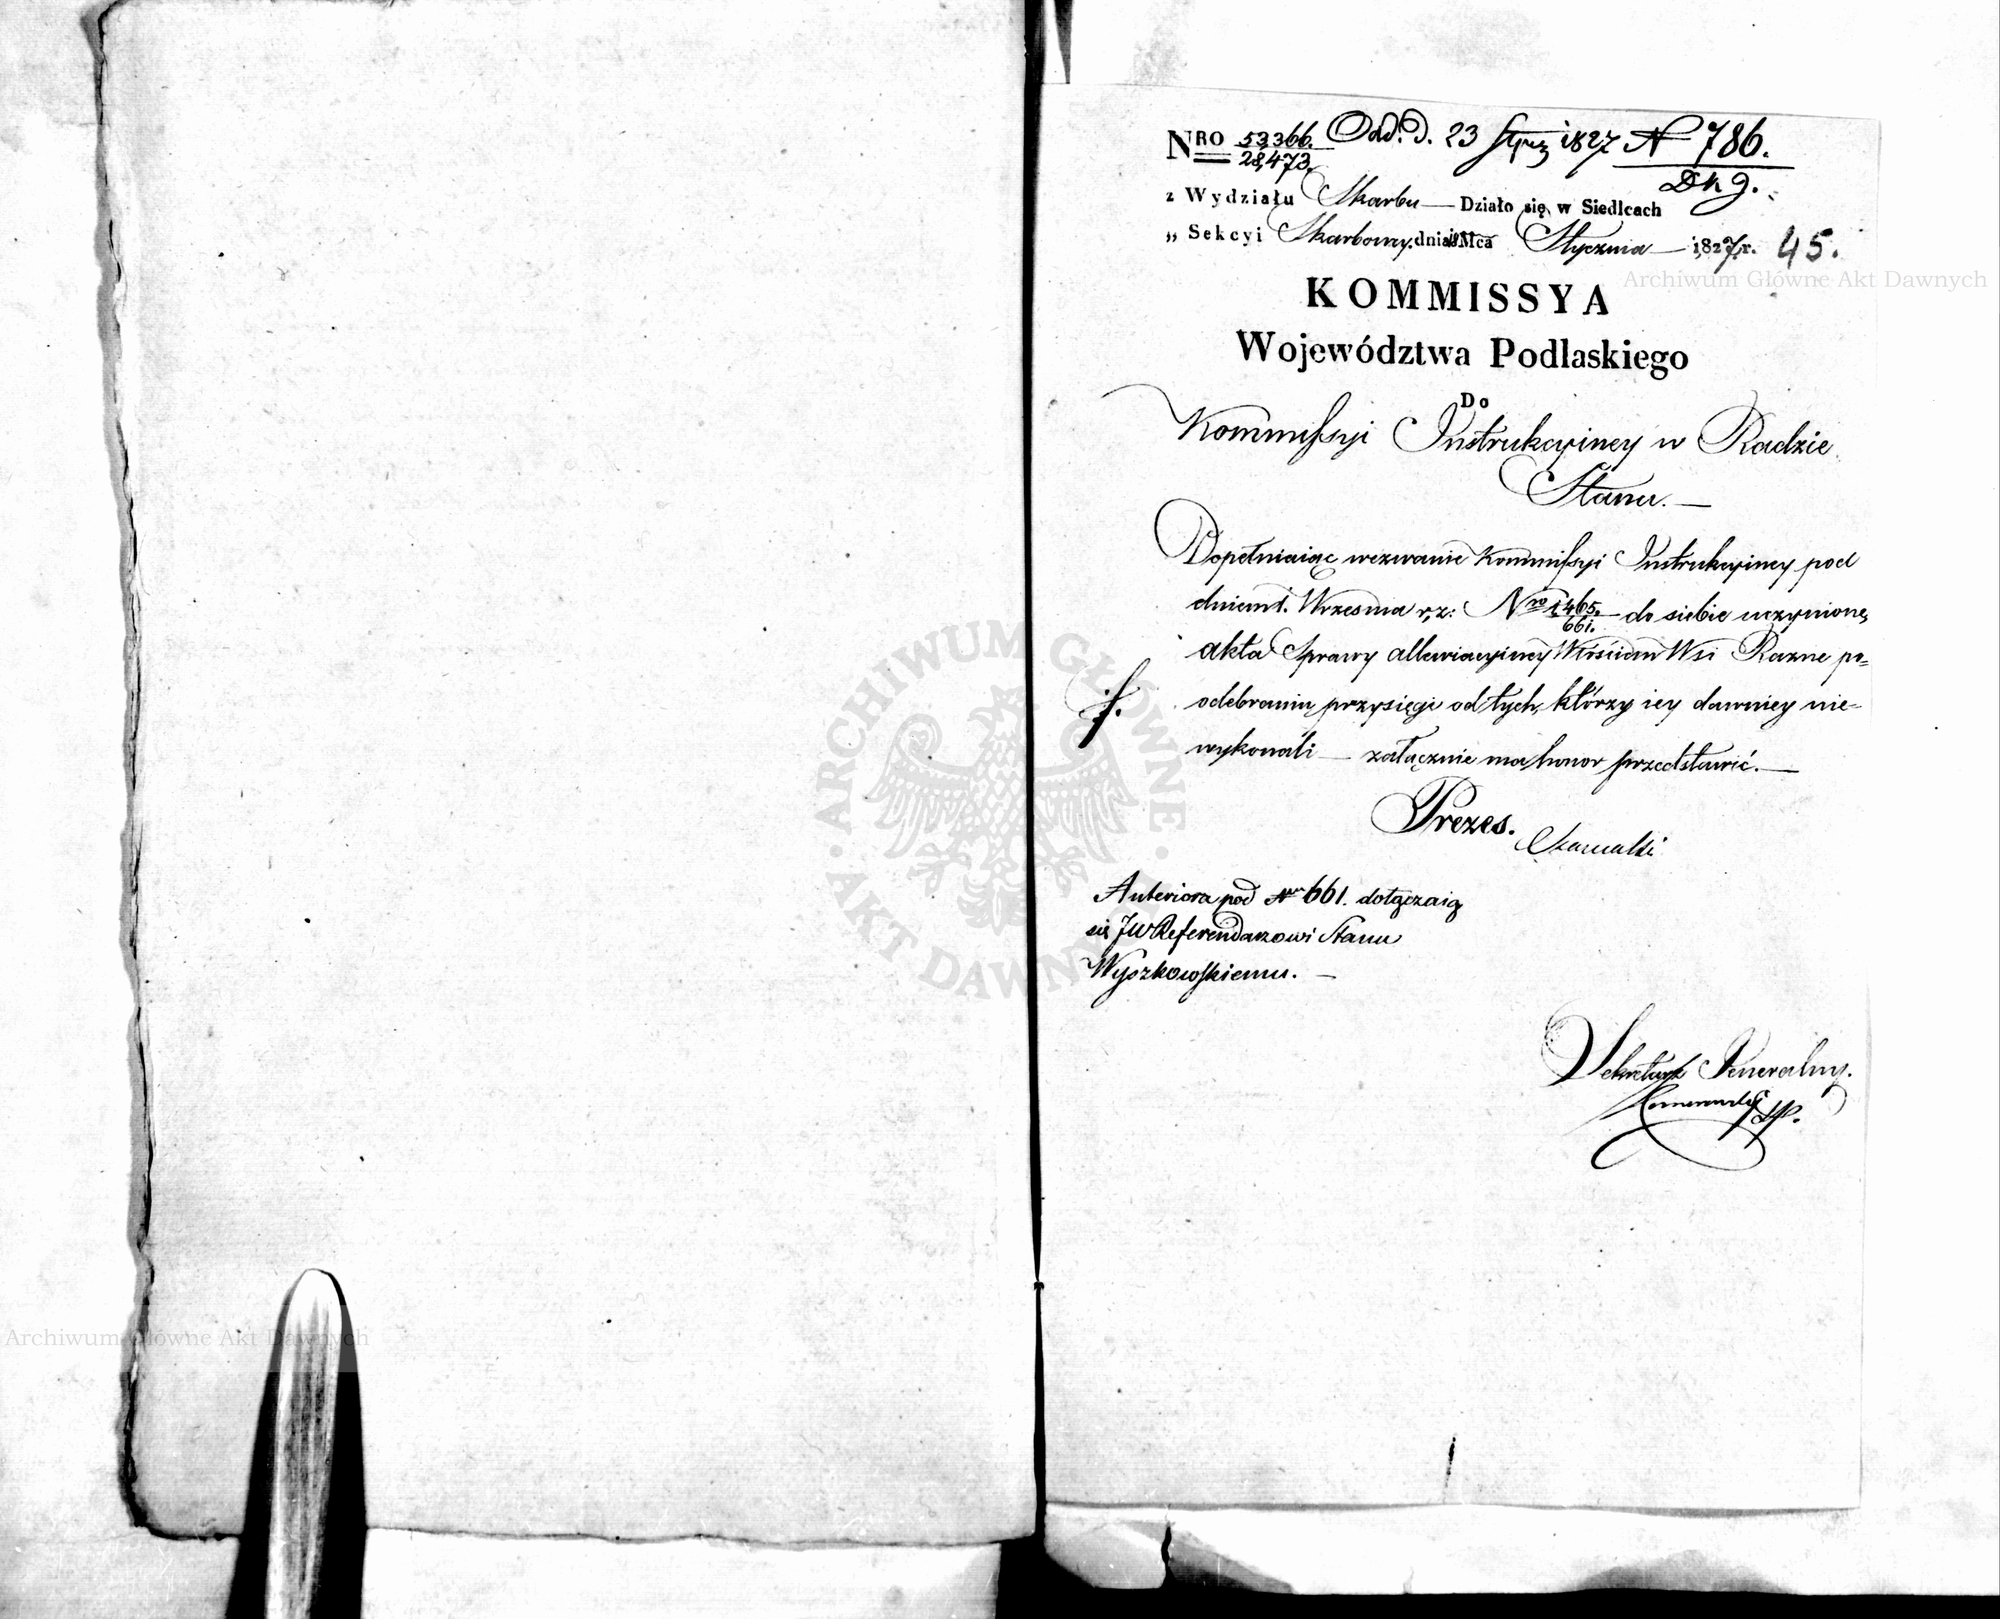 NRO 53366. Odd. D. 23 Stycz 1827 N 786.
28,473. Dkg.
z Wydziału Skarbu — Działo się w Siedlcach
„ Sekcyi Skarbowy. dnia Mca Stycznia — 1827. r. 45.
Archiwum Główne Akt Dawnych
KOMMISSYA
Województwa Podlaskiego
Do
Kommissyi Instrukcyiney w Radzie
Stanu. —
Dopełniaiąc wezwanie Kommissyi Instrukcyiney pod
dniem 1. Września r, z: Nro 1465. do siebie uczynione,
661.
akta Sprawy allewiacyiney Włościan Wsi Razne po=
odebraniu przysięgi od tych, którzy iey dawniey nie=
wykonali — załącznie ma honor przedstawić. —
Prezes.
Anteriora pod Nr 661. dołączaią
się JW Referendarzowi Stanu
Wyszkowskiemu. —
Sekretarz Generalny.
ARCHIWUM GŁÓWNE
AKT DAWNYCH
Archiwum Główne Akt Dawnych